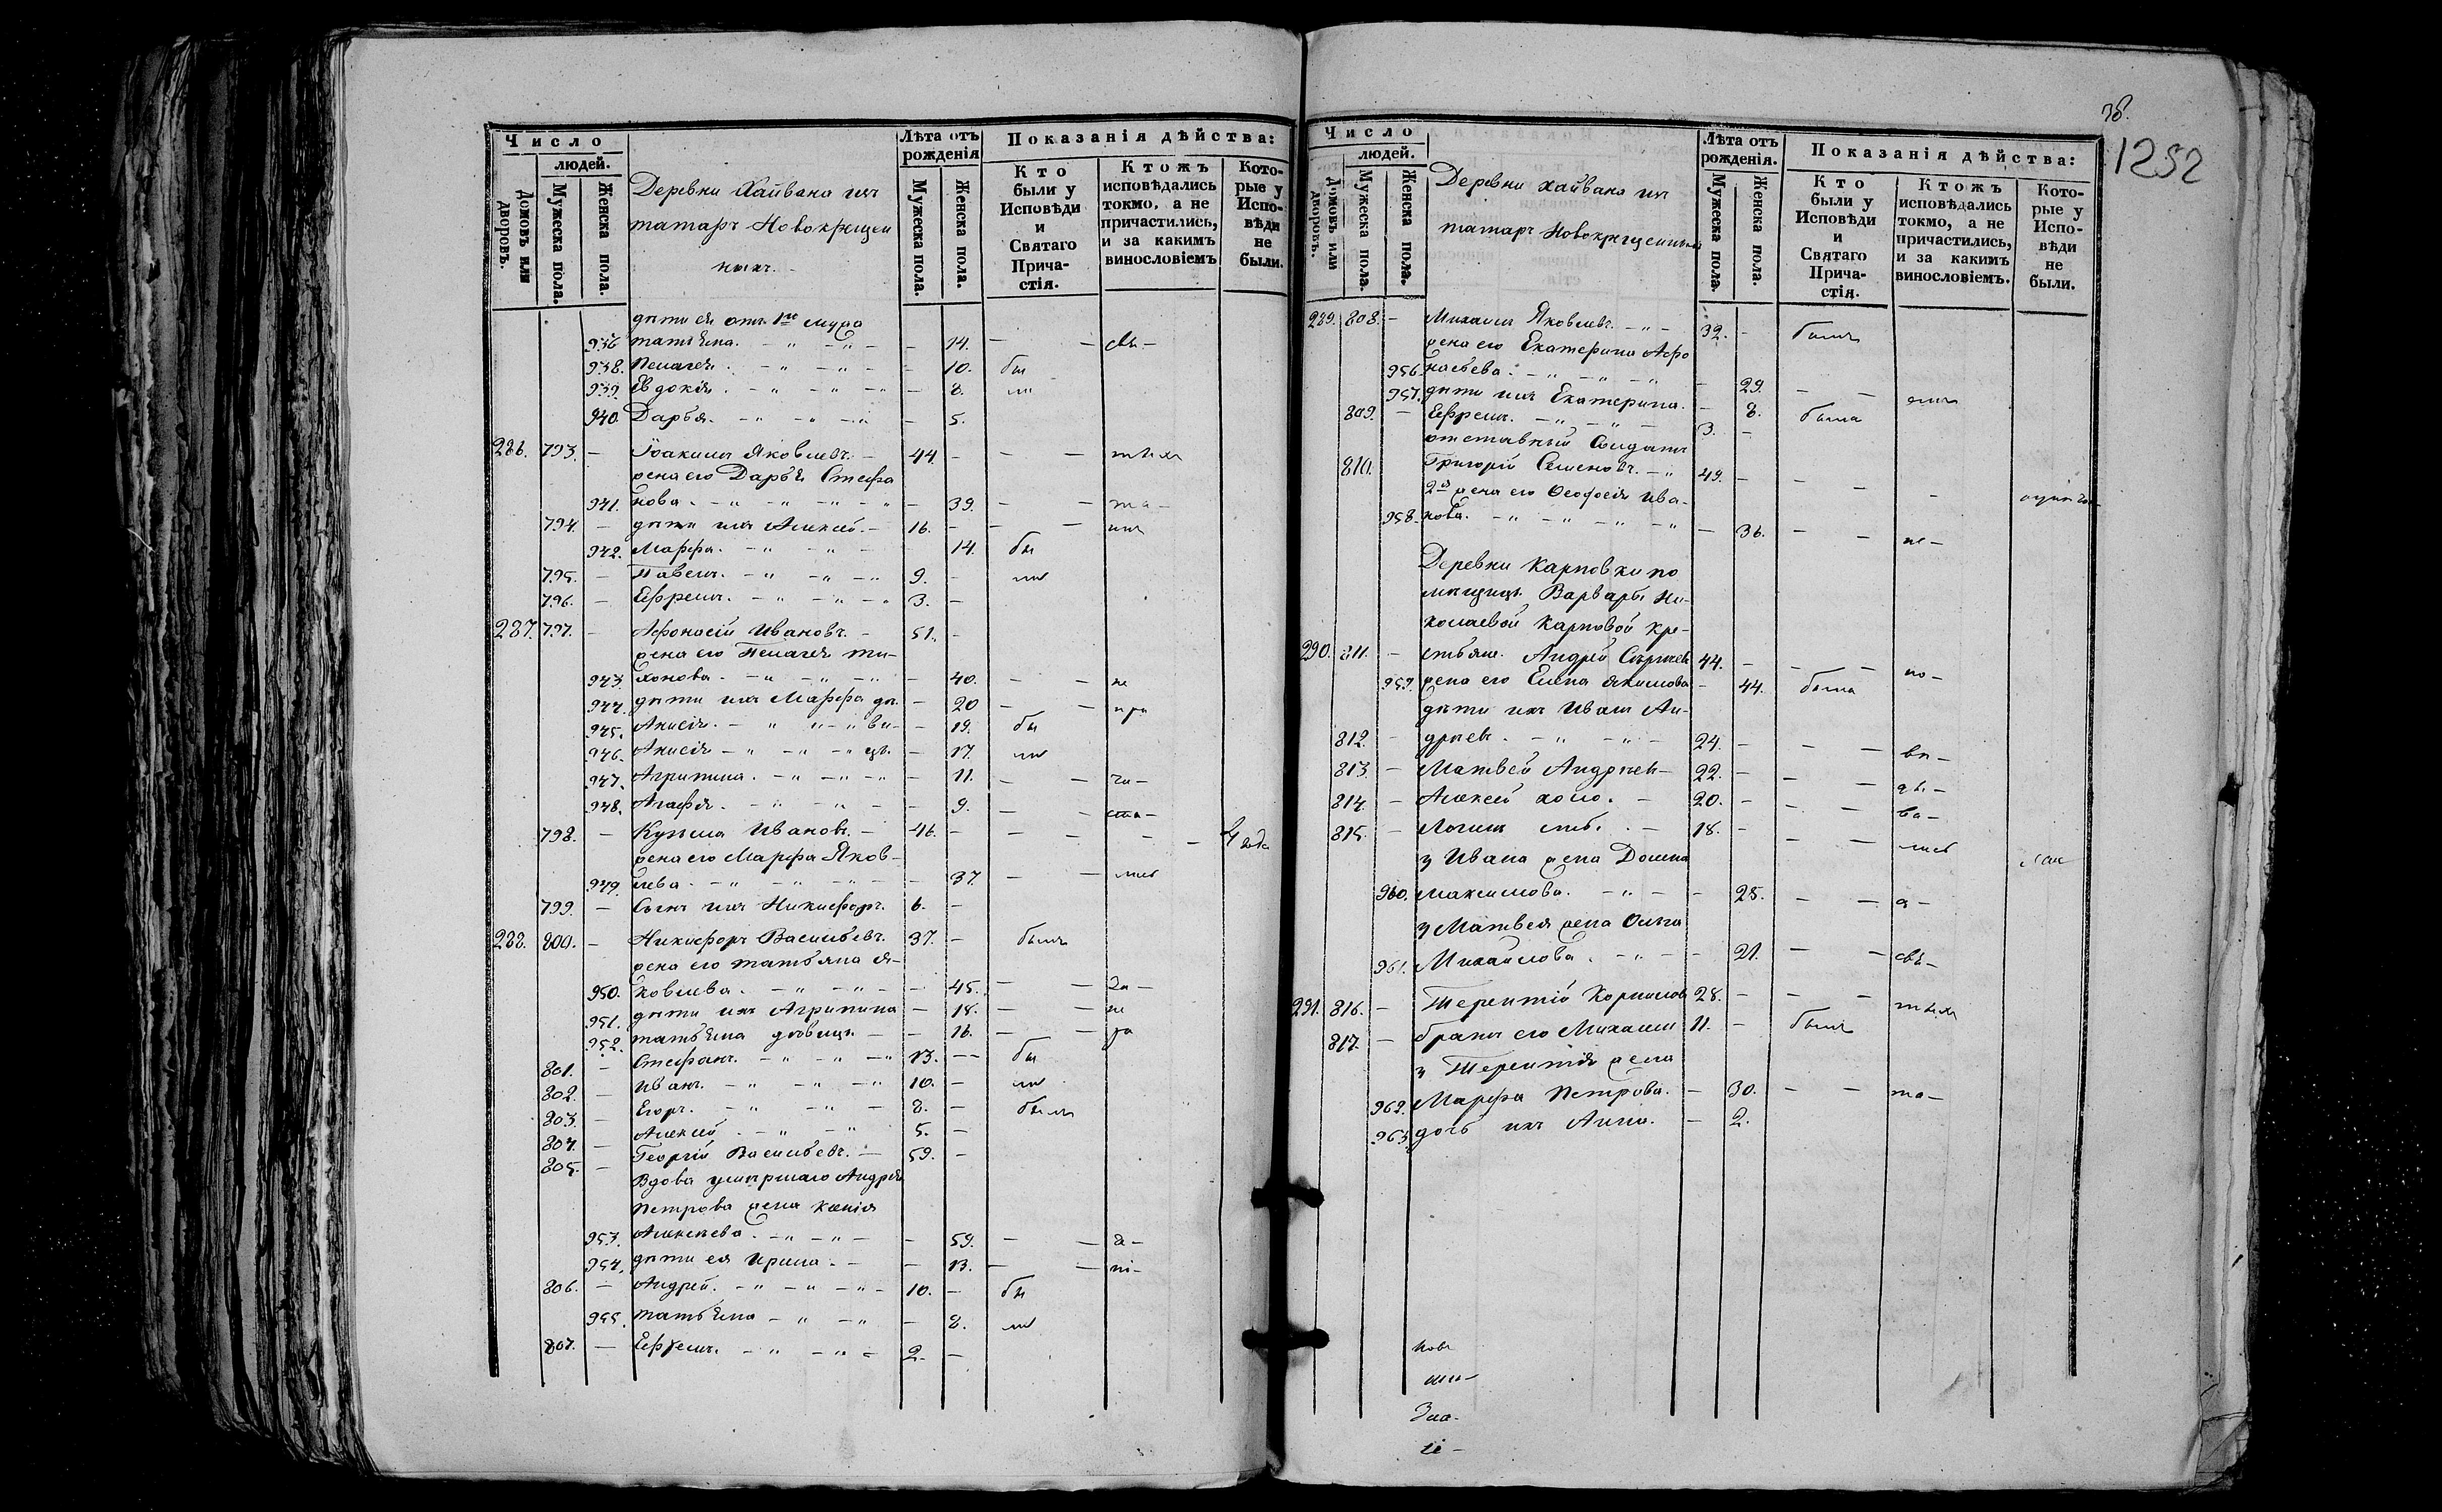 Число
людей.
Домовъ или дворовъ.
Мужеска пола.
Женска пола.
Деревни Хайвана изъ
татаръ Новокрещен
ныхъ.
Лѣта отъ рожденія
Мужеска пола.
Женска пола.
Показанія дѣйства:
Кто были у Исповѣди и Святаго Прича-стія.
Ктожъ исповѣдались токмо, а не причастились, и за какимъ винословіемъ
Кото-рые у Испо-вѣди не были.
дѣти ея отъ 1го мужа
936 татьяна. 14.
938. Пелагея. 10. бы
939. Евдокія. 8. ли
940. Дарья. 5.
286. 793. — Іоакимъ Яковлевъ. 44.
жена его Дарья Стефа
941. нова. 39. та—
794. — дѣти ихъ Алексѣй. 16.
942. Марфа. 14. бы
795. — Павелъ. 9. ли
796. — Ефремъ. 3.
287. 797. — Афонасій Ивановъ. 51.
жена его Пелагея ти—
943. хонова. 40. не
944. дѣти ихъ Марфа дѣ. 20 при
945. Анисія. ви— 19. бы
946. Анисія цы. 17. ли
947. Агрипина. 11. ча—
948. Агафія. 9. ста—
798. — Кузьма Ивановъ. 46.
жена его Марфа Яков—
949. лева. 37. лись
799. — Сынъ ихъ Никифоръ. 6.
288. 800. — Никифоръ Васильевъ. 37. былъ
жена его татьяна Я—
950. ковлева. 45. за —
951. дѣти ихъ Агрипина 18. не
952. татьяна дѣвицы 16. ра
801. — Стефанъ. 13. бы
802. — Иванъ. 10. ли
803. — Егоръ. 8. были
804. — Алексѣй. 5.
805. — Георгій Васильевъ. 59.
Вдова умершаго Андрея
Петрова жена Ксенія
953. Алексѣева. 59.
954. дѣти ея Ирина. 13.
806. — Андрей. 10. бы
955. татьяна 8. ли
807. — Ефремъ. 2.
38.
1252
Число
людей.
Домовъ или дворовъ.
Мужеска пола.
Женска пола.
Деревни хайвана изъ
татаръ Новокрещенныхъ
Лѣта отъ рожденія.
Мужеска пола.
Женска пола.
Показанія дѣйства:
Кто были у Исповѣди и Святаго Прича-стія.
Ктожъ исповѣдались токмо, а не причастились, и за какимъ винословіемъ.
Кото-рые у Испо-вѣди не были.
289. 808. — Михаилъ Яковлевъ. 32. былъ
жена его Екатерина Афо
956. насьева. 29.
957. дѣти ихъ Екатерина. 8. была
809. — Ефремъ. 3.
отставный Солдатъ
810. Григорій Семеновъ. 49.
2я жена его Ѳеодосія Ива—
958. нова. 36. не—
Деревни Карповки по
мѣщицы Варвары Ни—
колаевой Карповой кре—
290. 811. — стьяне. Андрей Сергѣевъ 44. по—
959. жена его Елена якимова 44. была
дѣти ихъ Иванъ Ан—
812. — дреевъ. 24.
813. — Матвѣй Андреевъ 22.
814. — Алексѣй холо. 20. ва—
815. — Логинъ сты. 18. лись
у Ивана жена Домна
960. Максимова. 25. а—
у Матвея жена Ольга
961. Михайлова. 21. свѣ—
291. 816. — Терентій Корниловъ 28.
817. — братъ его Михаилъ 11. былъ
у Терентія жена
962. Марфа Петрова. 30. та—
963. дочь ихъ Анна. 2.